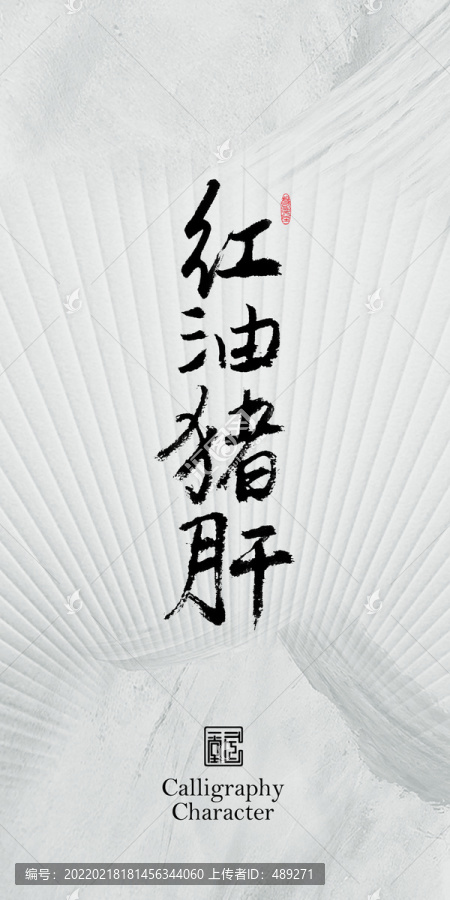 红油猪肝
Calligraphy
Character
编号：20220218181456344060 上传者ID：489271